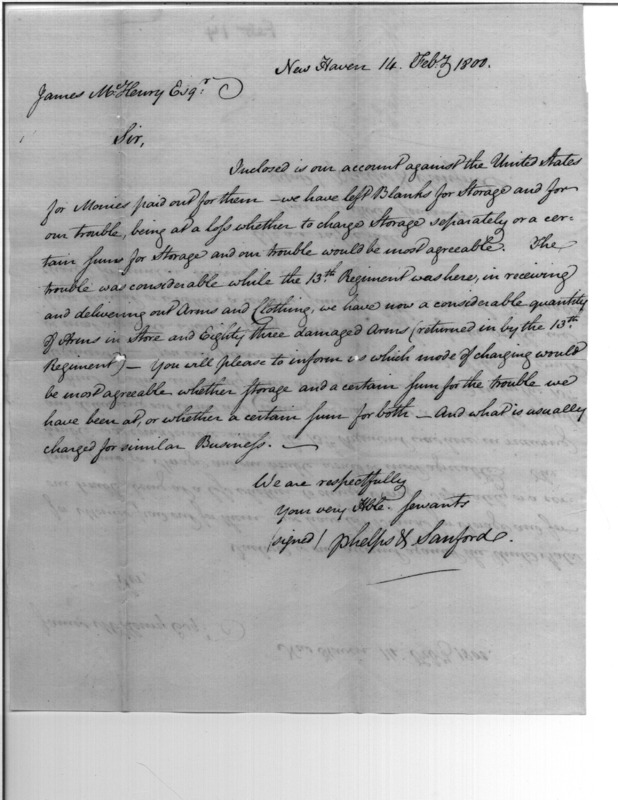 New Haven 14. Feb.y 1800.
James McHenry Esq.r
Sir,
Inclosed is our account against the United States
for Monies paid out for them – we have left Blanks for Storage and for
our trouble, being at a loss whether to charge Storage separately or a cer-
tain sum for Storage and our trouble would be most agreeable. The
trouble was considerable while the 13.th Regiment was here, in receiving
and delivering out Arms and Clothing, we have now a considerable quantity
of Arms in Store and Eighty three damaged Arms (returned in by the 13.th
Regiment) – You will please to inform us which mode of charging would
be most agreeable whether storage and a certain sum for the trouble we
have been at, or whether a certain sum for both – And what is usually
charged for similar Business. –
We are respectfully
Your very Hble. Servants
(signed) Phelps & Sanford.